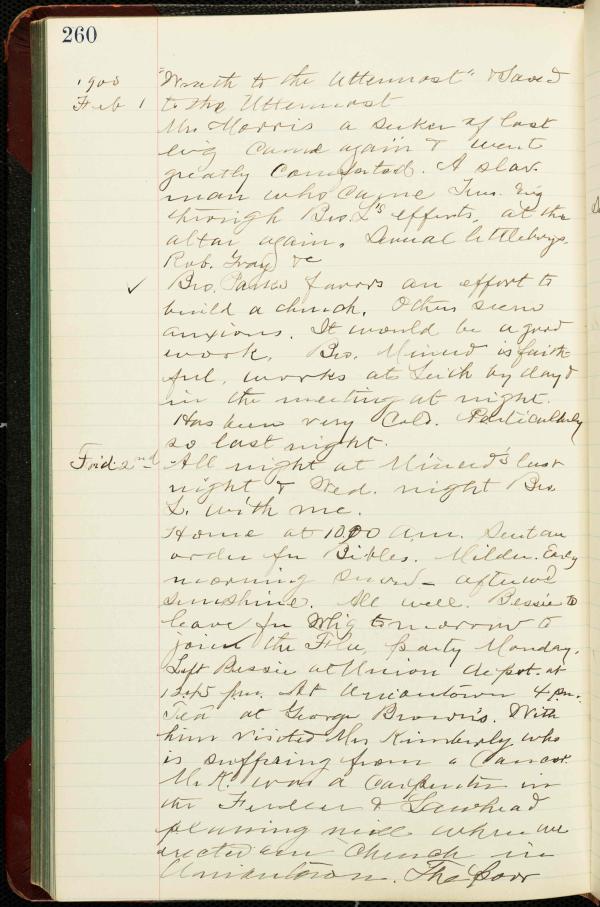 260
1900 "Wrath to the Uttermost" & Saved
Feb 1 to the Uttermost
Mrs. Morris a seeker of last
evg came again & went
greatly comforted. A slav.
man who came Tues. Evg
through Bro. L's efforts, at the
altar again. Several little boys.
Rob. Gray &c
✓ Bro. favors an effort to
build a church. Others seem
anxious. It would be a good
work. Bro. Minerd is faith
ful, works at Leith by day &
in the meeting at night.
Has been very Cold. Particularly
so last night.
Frid 2nd All night at Minerd's last
night & Wed. night Bro
L. with me.
Home at 10 00 a.m. Sent an
order for Bibles. Milder. Early
morning snow - afterwd
sunshine. All well. Bessie to
leave for tomorrow to
join the Fla. party Monday.
Left Bessie at Union depot. at
12.45 p.m. At Uniontown 4 pm.
Tea at George Brown's. With
him visited Mrs Kimberly who
is suffering from a Cancer.
Mr K. was a Carpenter in
the & Lawhead
planing mill when we
erected our Church in
Uniontown. The poor